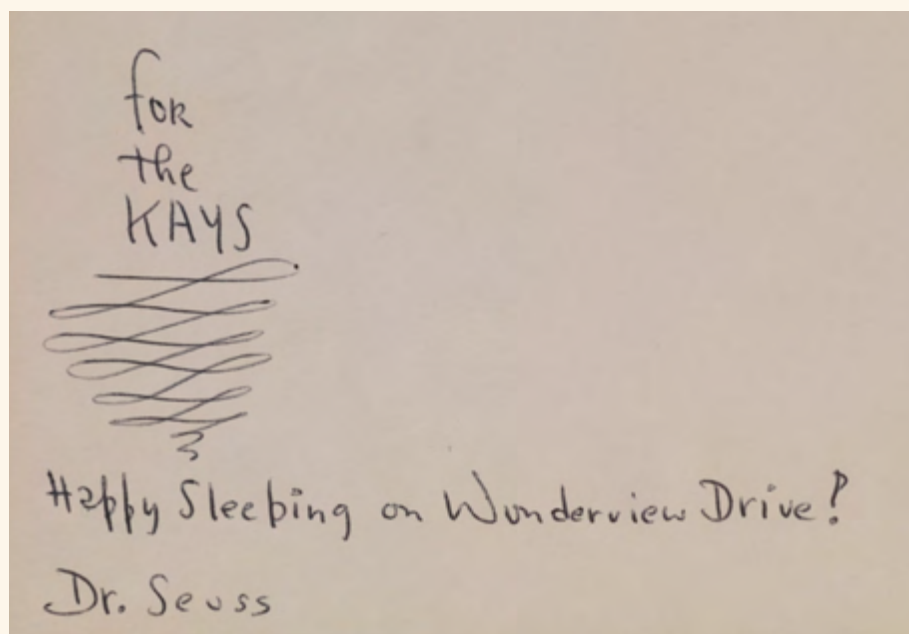 for
the
KAYS
Happy Sleeping on Wonderview Drive!
Dr. Seuss